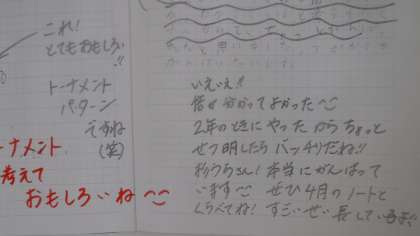 これ!
とてもおもしろい
!!
トーナメント
パターン
ですね
(笑)
ーナメント
考えて
おもしろいね
いえいえ!!
皆が分かってよかった
2年のときにやったからちょっと
せつ明したらバッチリだね!!
さん!本当にがんばって
います ぜひ4月のノートと
くらべてね! すごいせい長している